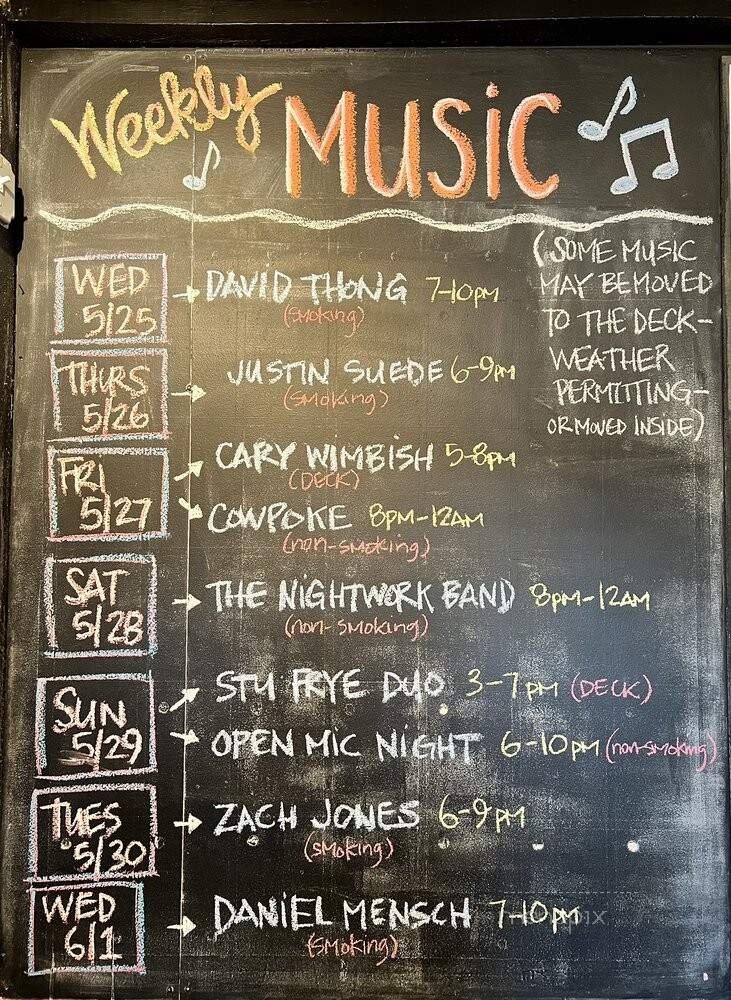 Weekly MUSiC
WED 5/25 → DAViD THONG 7-10pm
(smoking)
THURS 5/26 → JUSTIN SUEDE 6-9pm
(smoking)
FRI 5/27 → CARY WiMBiSH 5-8pm
(DECK)
→ COWPOKE 8pm-12AM
(non-smoking)
SAT 5/28 → THE NiGHTWORK BAND 8pm-12AM
(non-smoking)
SUN 5/29 → STU FRYE DUO 3-7pm (DECK)
→ OPEN MiC NiGHT 6-10pm (non-smoking)
TUES 5/30 → ZACH JONES 6-9pm
(smoking)
WED 6/1 → DANiEL MENSCH 7-10pm
(smoking)
(SOME MUSIC
MAY BE MOVED
TO THE DECK-
WEATHER
PERMITTING-
OR MOVED INSIDE)